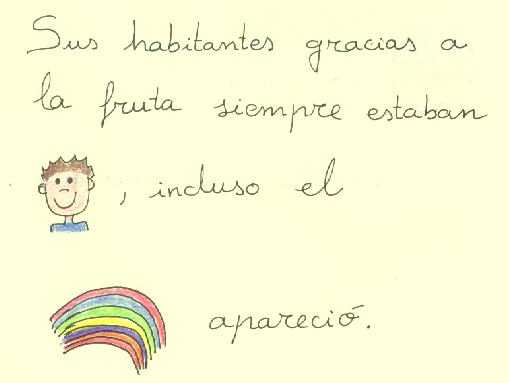 Sus habitantes gracias a
la fruta siempre estaban
, incluso el
apareció.